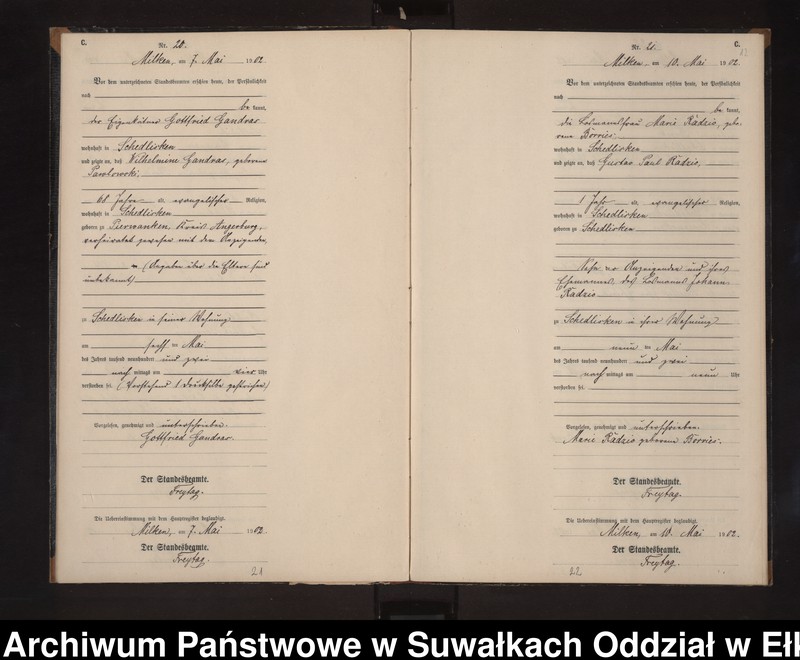 C.
Nr. 20.
Milken, am 7. Mai 1902.
Vor dem unterzeichneten Standesbeamten erschien heute, der Persönlichkeit
nach
be kannt,
der Eigenkätner Gottfried Gandras
wohnhaft in Schedlisken
und zeigte an, daß Wilhelmine Gandras, geborene
Pawlowski,
61 Jahre evangelischer Religion,
wohnhaft in Schedlisken
geboren zu Pierwanken, Kreis Angerburg,
verheiratet gewesen mit dem Anzeigenden,
(Angaben über die Eltern sind
unbekannt)
zu Schedlisken in seiner Wohnung
am sechsten Mai
des Jahres tausend neunhundert und zwei
nach mittags um vier Uhr
verstorben sei. (Vorstehend 1 Drucksilbe gestrichen)
Vorgelesen, genehmigt und unterschrieben.
Gottfried Gandras.
Der Standesbeamte.
Freytag.
Die Uebereinstimmung mit dem Hauptregister beglaubigt.
Milken, am 7. Mai 1902.
Der Standesbeamte.
Freytag.
21
C.
Nr. 21.
Milken am 10. Mai 1902.
Vor dem unterzeichneten Standesbeamten erschien heute, der Persönlichkeit
nach
be kannt,
die Losmannsfrau Marie Radzio, gebo-
rene Borries
wohnhaft in Schedlisken
und zeigte an, daß Gustav Paul Radzio,
1 Jahr evangelischer Religion,
wohnhaft in Schedlisken
geboren zu Schedlisken
Sohn der Anzeigenden und ihres
Ehemannes, des Losmanns Johann
Radzio
zu Schedlisken in ihrer Wohnung
am neunten Mai
des Jahres tausend neunhundert und zwei
nach mittags um neun Uhr
verstorben sei.
Vorgelesen, genehmigt und unterschrieben.
Marie Radzio geborene Borries.
Der Standesbeamte.
Freytag.
Die Uebereinstimmung mit dem Hauptregister beglaubigt.
Milken, am 10. Mai 1902.
Der Standesbeamte.
Freytag.
22
Archiwum Państwowe w Suwałkach Oddział w Ełk